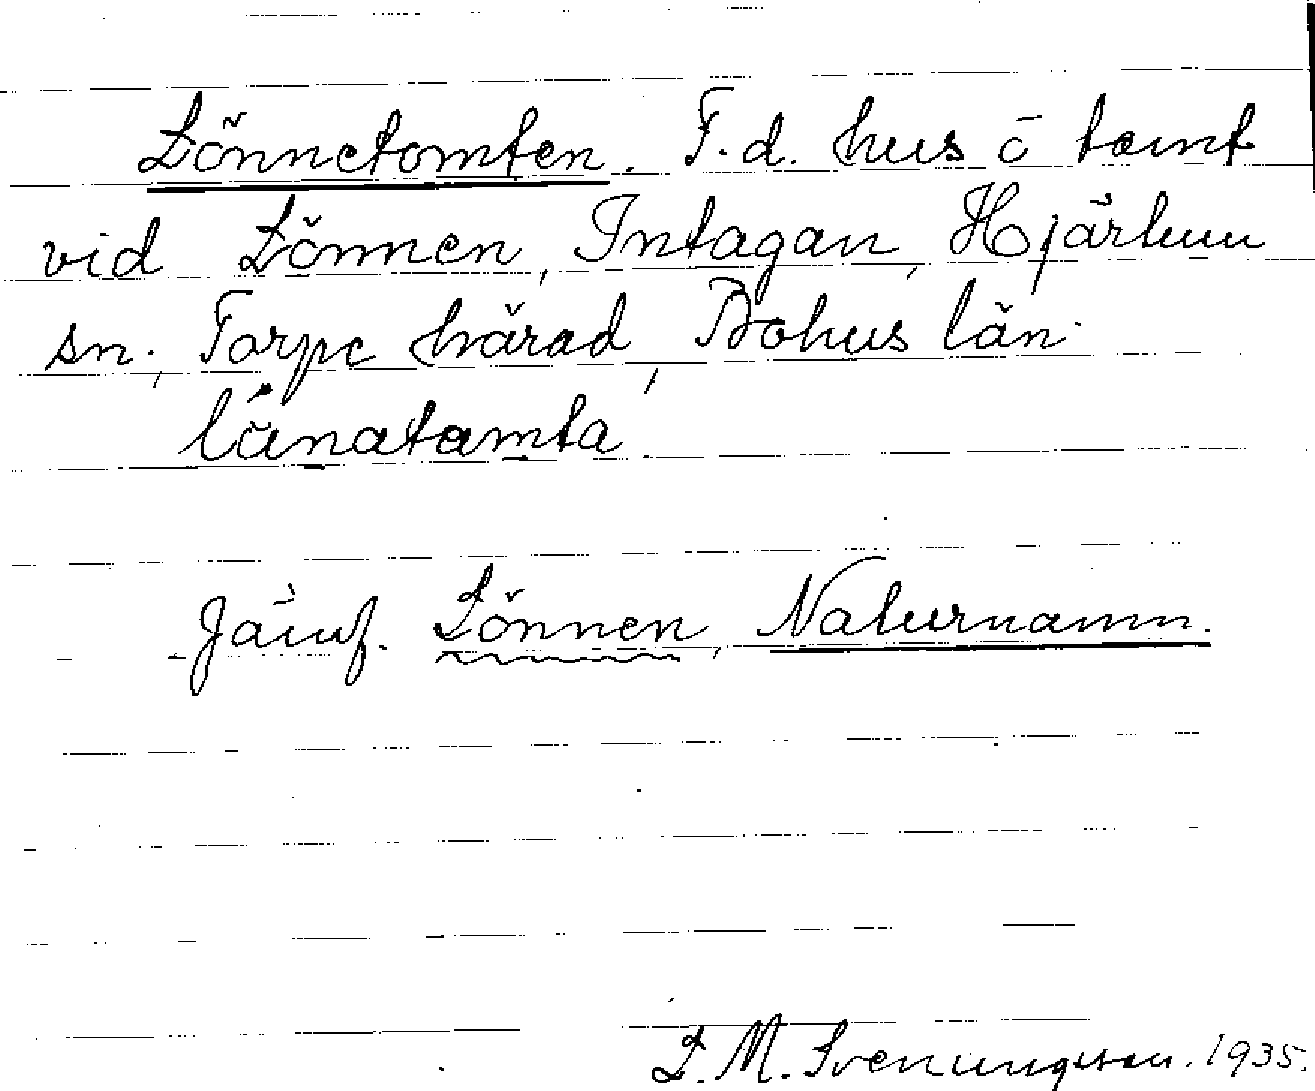 Lönnetomten. F.d. hus ō tomt
vid Lönnen, Intagan, Hjärtum
sn., Torpe härad, Bohus län.
lä́natamta
Jämf. Lönnen, Naturnamn.
L. M. Svenungsson. 1935.